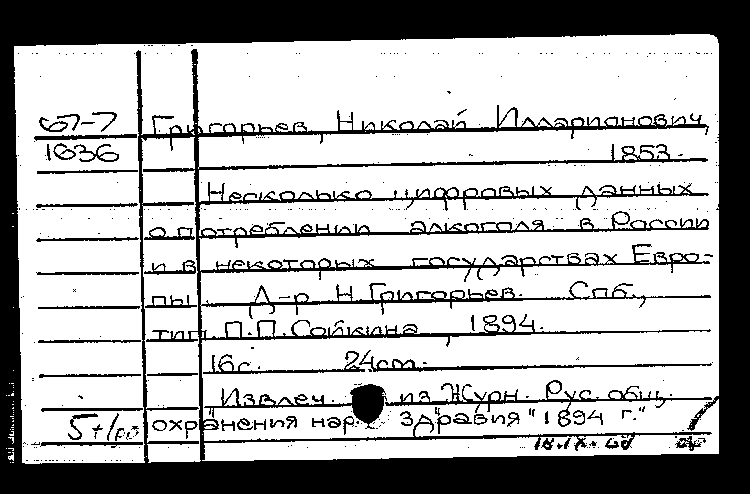 67-7 Григорьев, Николай Илларионович,
1836 1853-
Несколько цифровых данных
о потреблении алкоголя в России
и в некоторых государствах Евро-
пы Д-р Н.Григорьев. Спб.,
тип. П.П.Сойкина, 1894.
16с. 24cm.
"Извлеч. из "Журн. Рус. общ.
охранения нар. здравия" 1894 г."